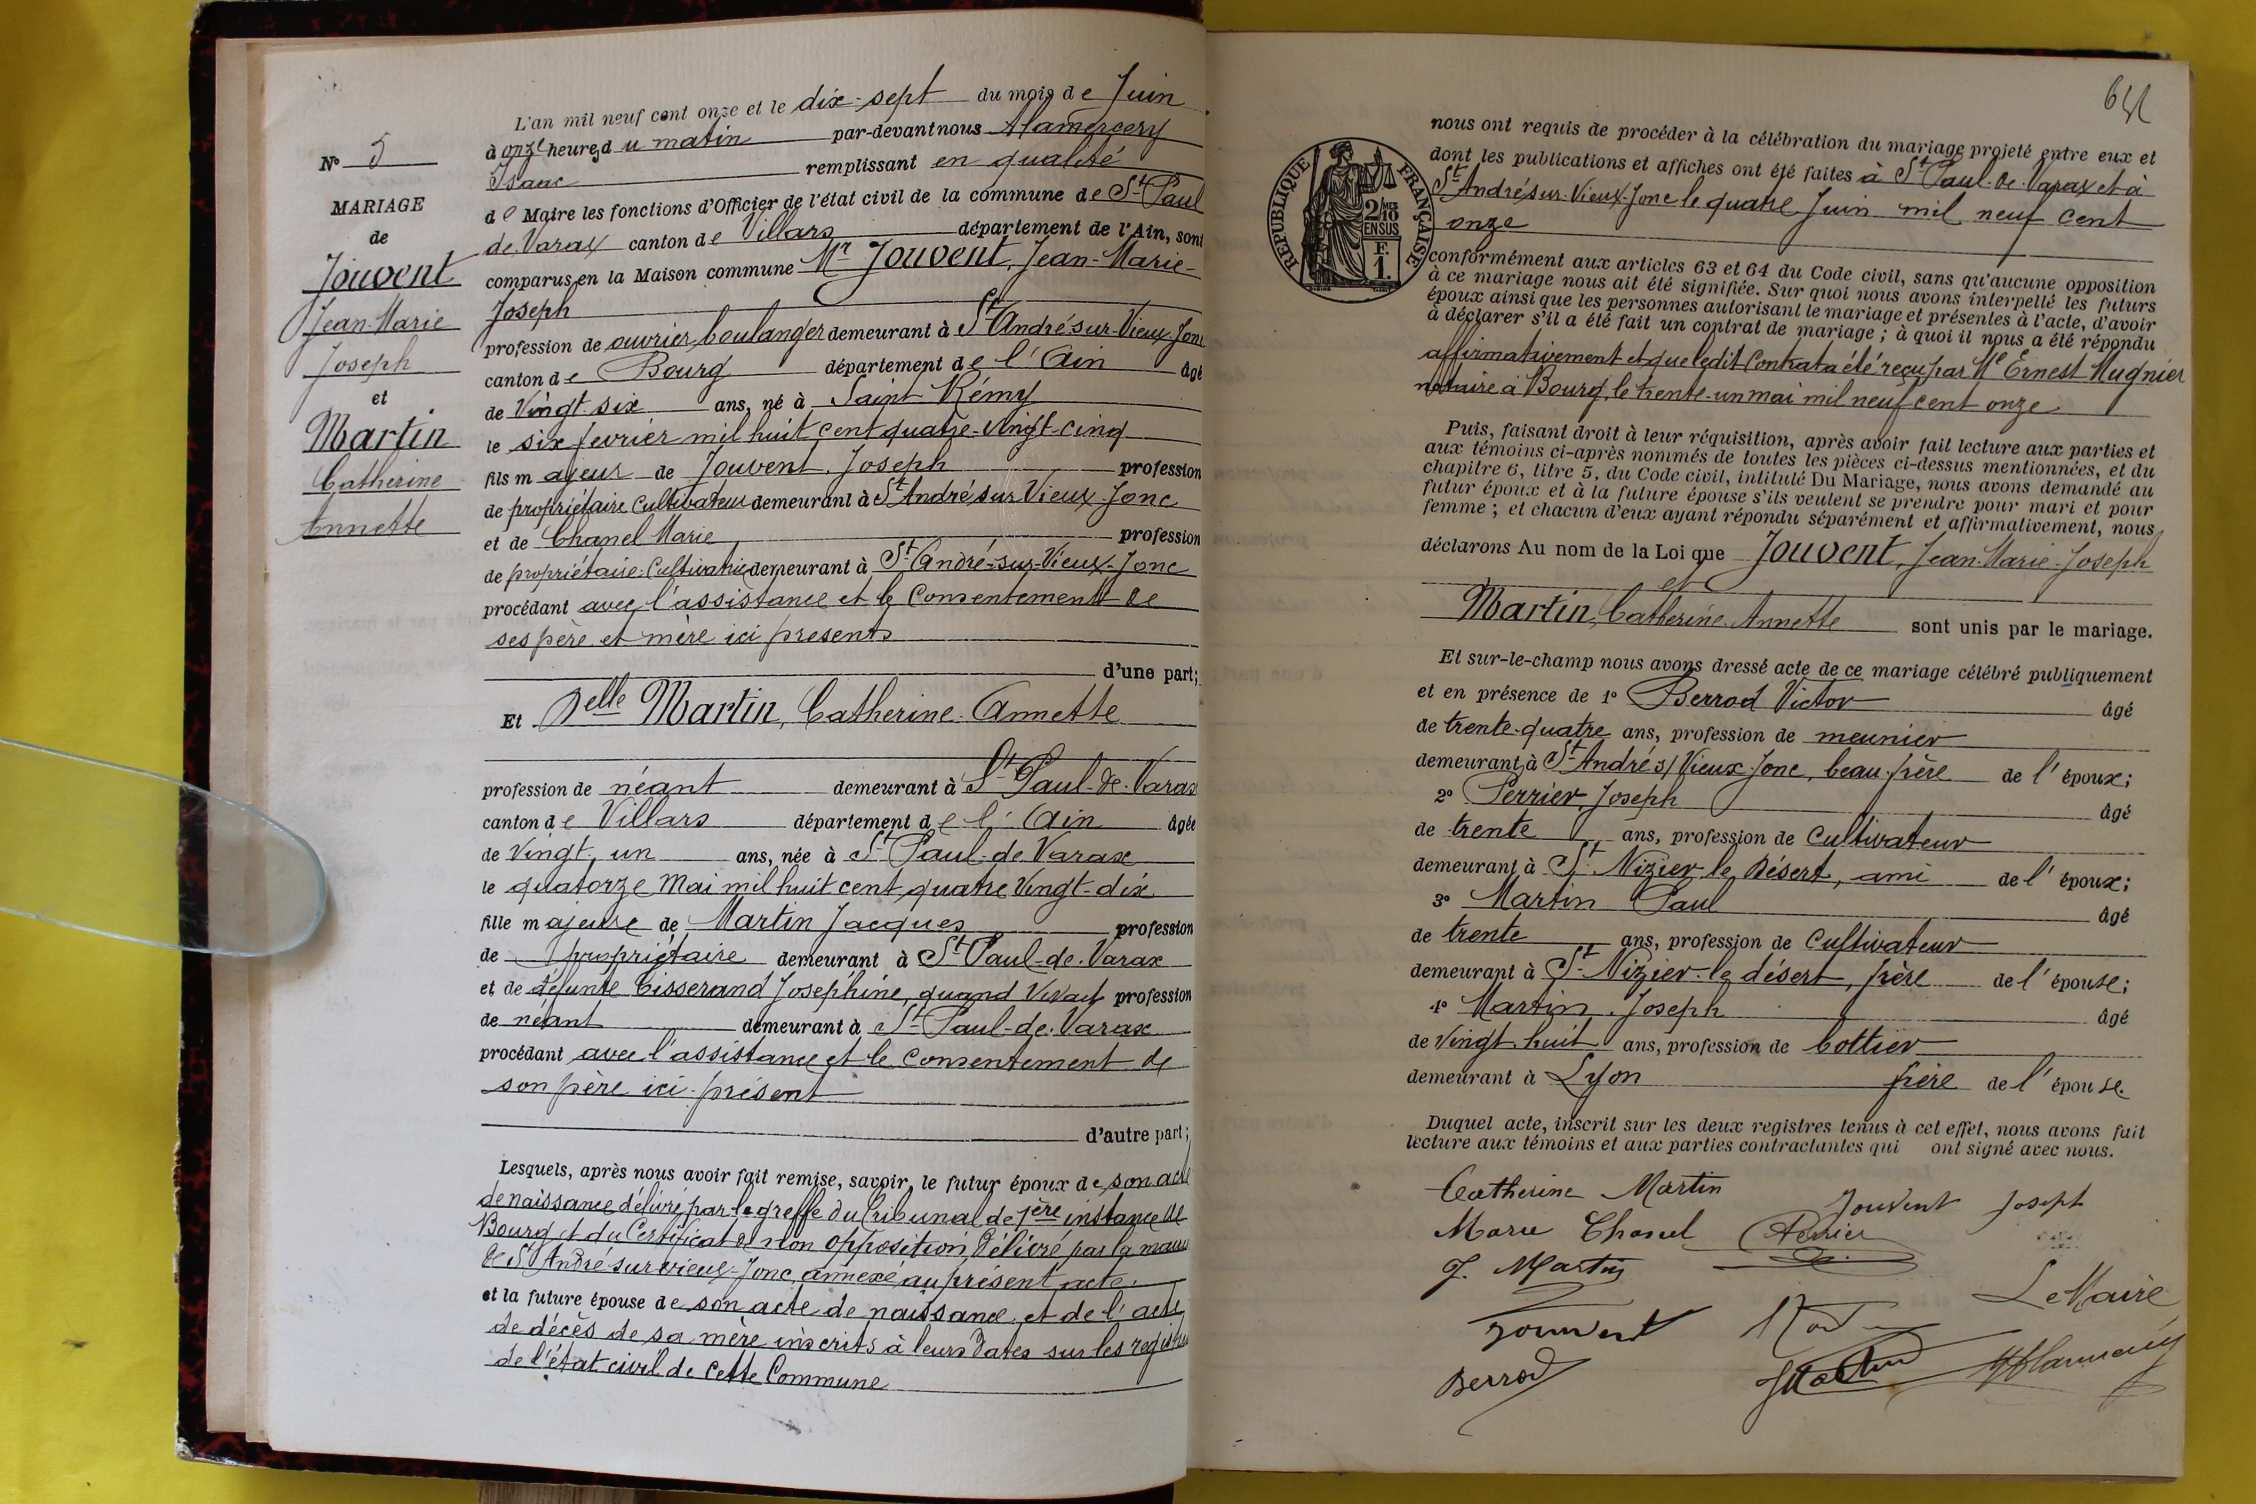 L'an mil neuf cent onze et le dix-sept du mois de Juin
à onze heures du matin par-devant nous
Isaac remplissant en qualité
de Maire les fonctions d'Officier de l'état civil de la commune de St Paul
de Varax canton de Villars département de l'Ain, sont
comparus en la Maison commune Mr Jouvent, Jean-Marie-
Joseph
profession de ouvrier boulanger demeurant à St André-sur-Vieux-Jonc
canton de Bourg département de l'Ain âgé
de Vingt six ans, né à Saint Rémy
le six fevrier mil huit cent quatre-vingt-cinq
fils majeur de Jouvent Joseph profession
de propriétaire Cultivateur demeurant à St André sur Vieux-Jonc
et de Chanel Marie profession
de propriétaire-Cultivatrice demeurant à St André-sur-Vieux-Jonc
procédant avec l'assistance et le Consentement de
ses père et mère ici présents
d'une part;
Et Delle Martin, Catherine Annette
profession de néant demeurant à St Paul-de-Varax
canton de Villars département de l'Ain âgée
de Vingt un ans, née à St Paul-de Varax
le quatorze Mai mil huit cent quatre Vingt-dix
fille majeure de Martin Jacques profession
de propriétaire demeurant à St Paul-de-Varax
et de défunte Tisserand Joséphine, quand Vivait profession
de néant demeurant à St Paul-de-Varax
procédant avec l'assistance et le Consentement de
son père ici présent
d'autre part;
Lesquels, après nous avoir fait remise, savoir, le futur époux de son acte
de naissance délivré par le greffe du Tribunal de 1ère instance de
Bourg et du Certificat de non opposition délivré par la mairie
de St André sur vieux-Jonc, annexé au présent acte
et la future épouse de son acte de naissance et de l'acte
de décès de sa mère inscrits à leurs dates sur les registres
de l'état civil de cette Commune
No 5
MARIAGE
de
Jouvent
Jean-Marie
Joseph
et
Martin
Catherine
Annette
nous ont requis de procéder à la célébration du mariage projeté entre eux et
dont les publications et affiches ont été faites à St Paul-de-Varax et à
St André sur-Vieux-Jonc le quatre Juin mil neuf cent
onze
conformément aux articles 63 et 64 du Code civil, sans qu'aucune opposition
à ce mariage nous ait été signifiée. Sur quoi nous avons interpellé les futurs
époux ainsi que les personnes autorisant le mariage et présentes à l'acte, d'avoir
à déclarer s'il a été fait un contrat de mariage; à quoi il nous a été répondu
affirmativement et que ledit Contrat a été reçu par Me Ernest Mugnier
notaire à Bourg, le trente-un mai mil neuf cent onze
Puis, faisant droit à leur réquisition, après avoir fait lecture aux parties et
aux témoins ci-après nommés de toutes les pièces ci-dessus mentionnées, et du
chapitre 6, titre 5, du Code civil, intitulé Du Mariage, nous avons demandé au
futur époux et à la future épouse s'ils veulent se prendre pour mari et pour
femme; et chacun d'eux ayant répondu séparément et affirmativement, nous
déclarons Au nom de la Loi que Jouvent, Jean-Marie-Joseph
et
Martin, Catherine Annette sont unis par le mariage.
Et sur-le-champ nous avons dressé acte de ce mariage célébré publiquement
et en présence de 1o Berrod Victor âgé
de trente-quatre ans, profession de meunier
demeurant à St André s/ Vieux-Jonc, beau-frère de l'époux;
2o Perrier Joseph âgé
de trente ans, profession de Cultivateur
demeurant à St Nizier-le Désert, ami de l'époux;
3o Martin Paul âgé
de trente ans, profession de Cultivateur
demeurant à St Nizier-le désert, frère de l'épouse;
4o Martin Joseph âgé
de Vingt huit ans, profession de Cottier
demeurant à Lyon frère de l'épouse.
Duquel acte, inscrit sur les deux registres tenus à cet effet, nous avons fait
lecture aux témoins et aux parties contractantes qui ont signé avec nous.
Catherine Martin
Jouvent Joseph
Marie Chanel Perrier
J. Martin
Le Maire
Jouvent
Berrod
RÉPUBLIQUE FRANÇAISE
2/10
EN SUS
F.
1.